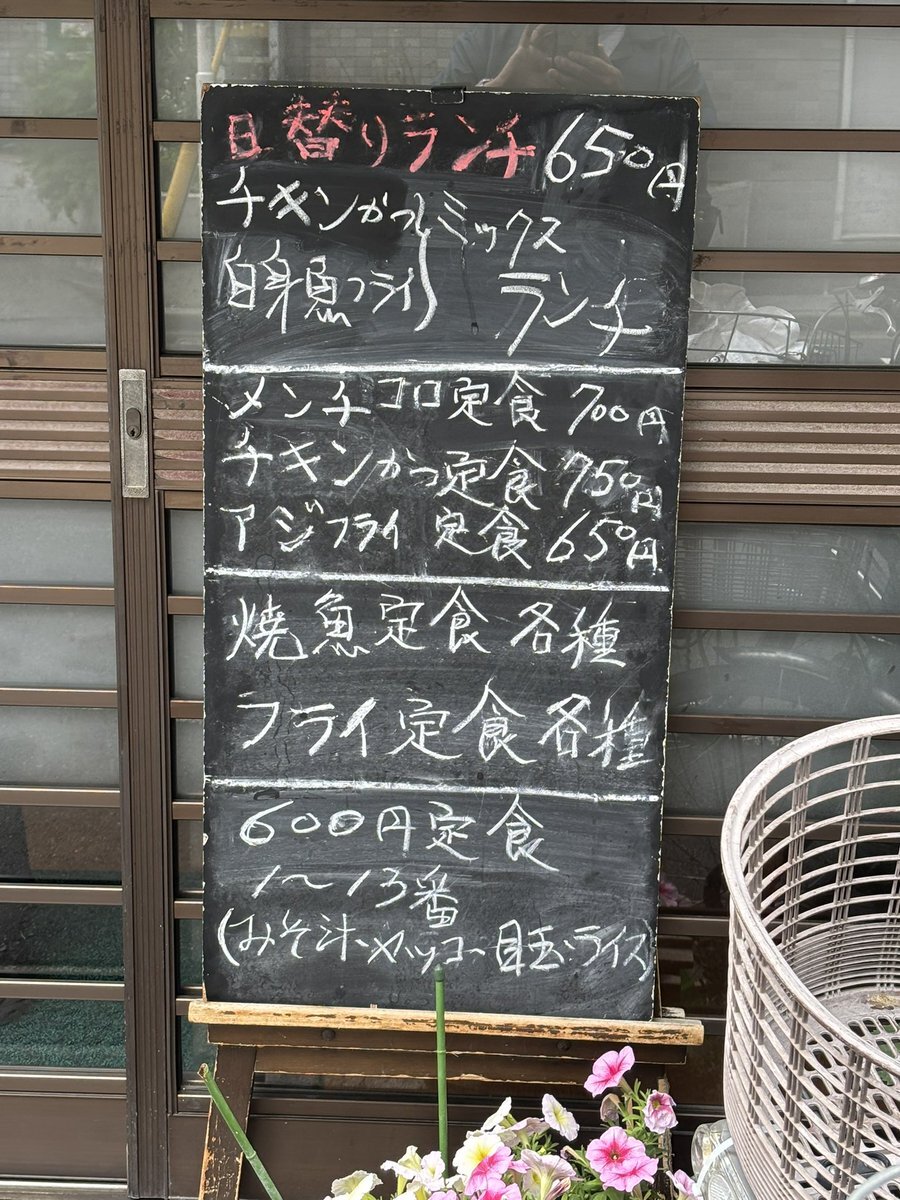 日替りランチ 650円
チキンかつ ミックス
白身魚フライ ランチ
メンチコロ定食 700円
チキンかつ定食 750円
アジフライ定食 650円
焼魚定食 各種
フライ定食 各種
600円定食
1〜13番
(みそ汁・ヤッコー目玉・ライス)